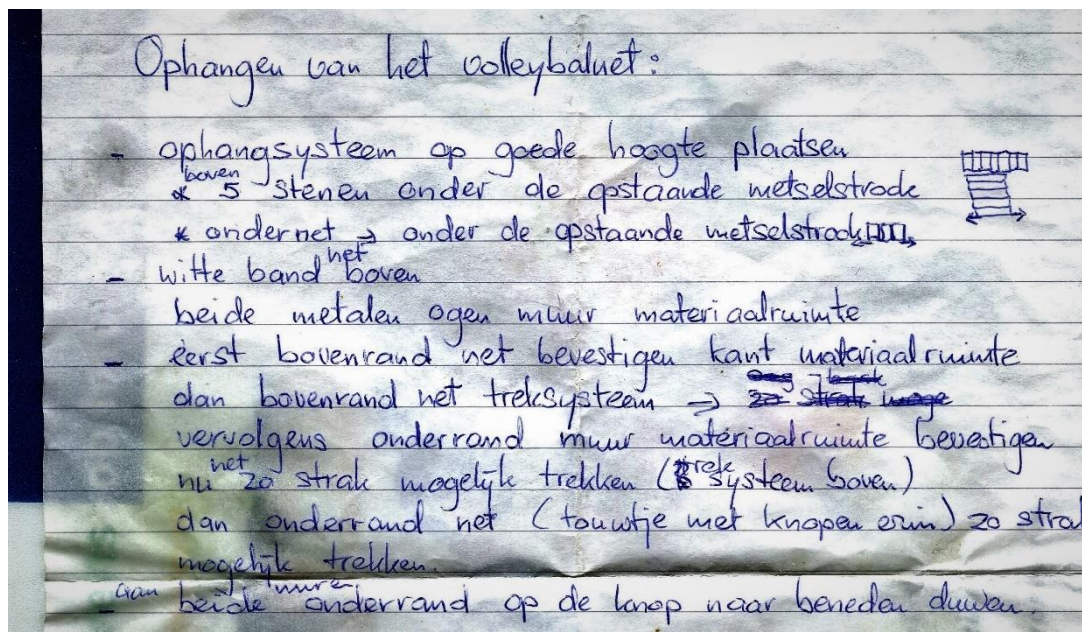 Ophangen van het volleybalnet:
- ophangsysteem op goede hoogte plaatsen
boven
* 5 stenen onder de opstaande metselstrook
* onder net → onder de opstaande metselstrook
- witte band net boven
beide metalen ogen muur materiaalruimte
- eerst bovenrand net bevestigen kant materiaalruimte
dan bovenrand net treksysteem →
vervolgens onderrand muur materiaalruimte bevestigen
nu net zo strak mogelijk trekken (treksysteem boven)
dan onderrand net (touwtje met knopen erin) zo stra
mogelijk trekken.
- aan beide muren onderrand op de knop naar beneden duwen.